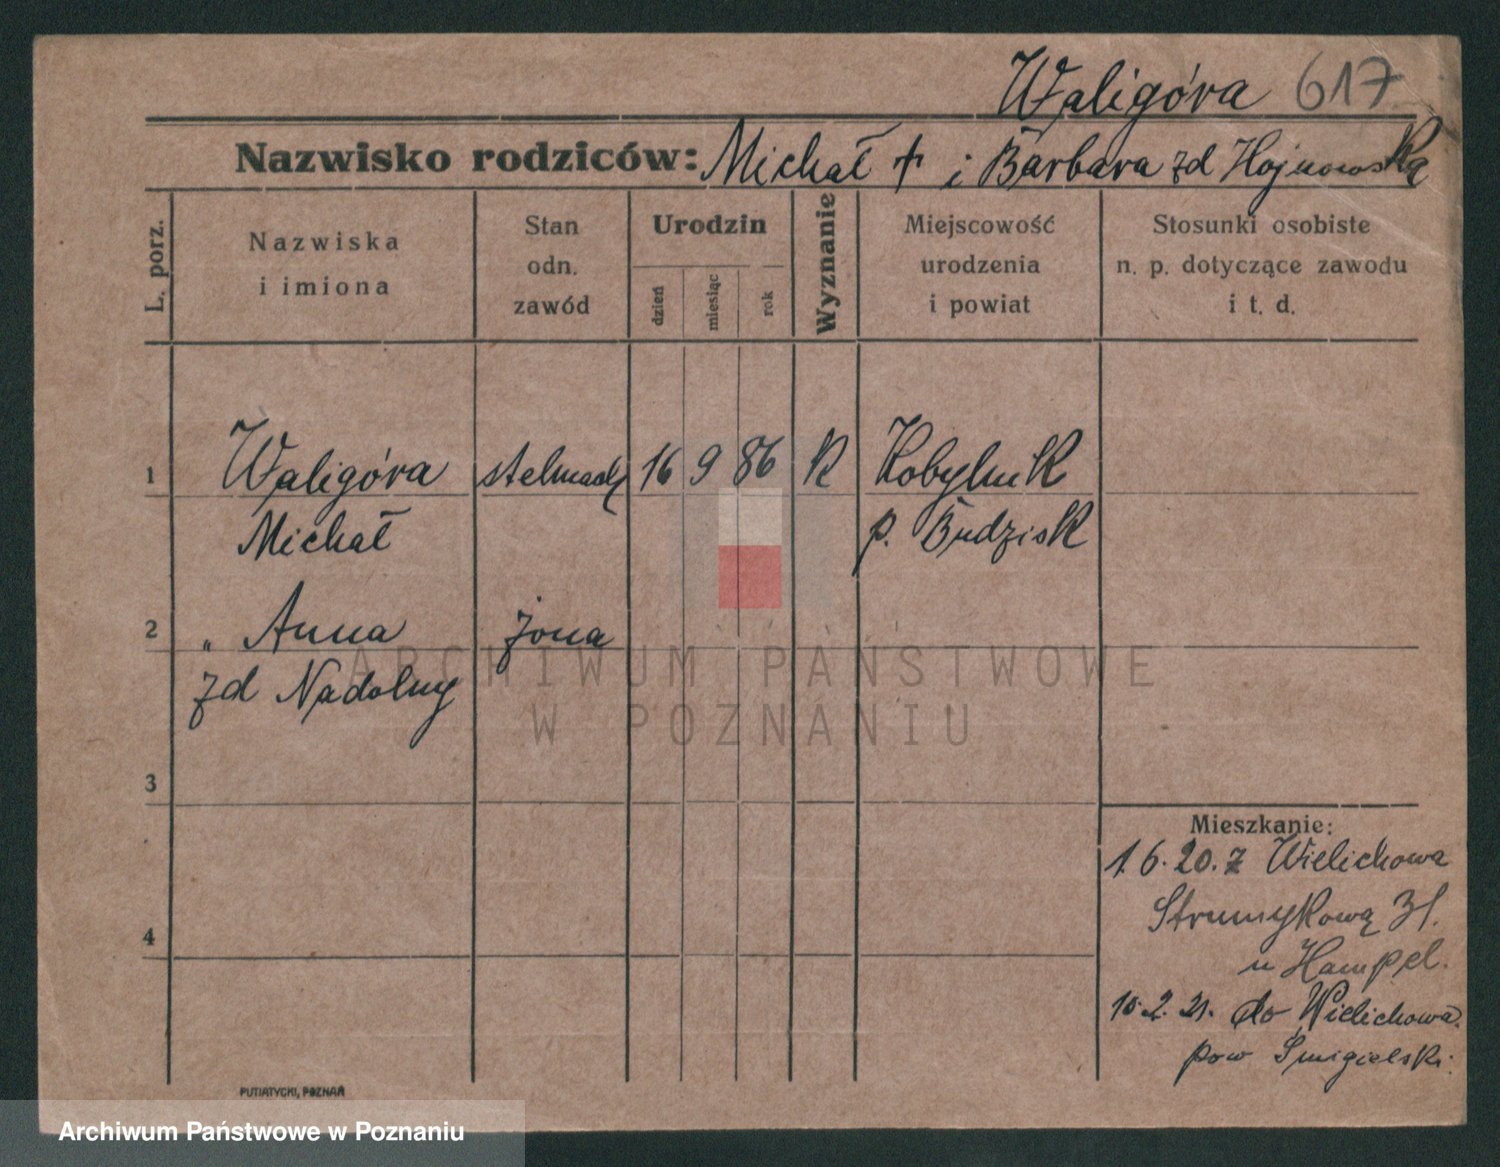 Waligóra 617
Nazwisko rodziców: Michał + i Barbara zd Hojnowską
L. porz.
Nazwiska
i imiona
Stan
odn.
zawód
Urodzin
dzień
miesiąc
rok
Wyznanie
Miejscowość
urodzenia
i powiat
Stosunki osobiste
n. p. dotyczące zawodu
i t. d.
1 Waligóra stelmach 16 9 86 K Kobylnik
Michał p. Budzisk
2 „ Anna żona
zd Nadolny
3
4
Mieszkanie:
1.6.20. z Wielichowa
Strumykową 31.
u Hampel.
10.2.21. do Wielichowa.
pow Śmigielski.
PUTIATYCKI, POZNAŃ
ARCHIWUM PAŃSTWOWE
W POZNANIU
Archiwum Państwowe w Poznaniu